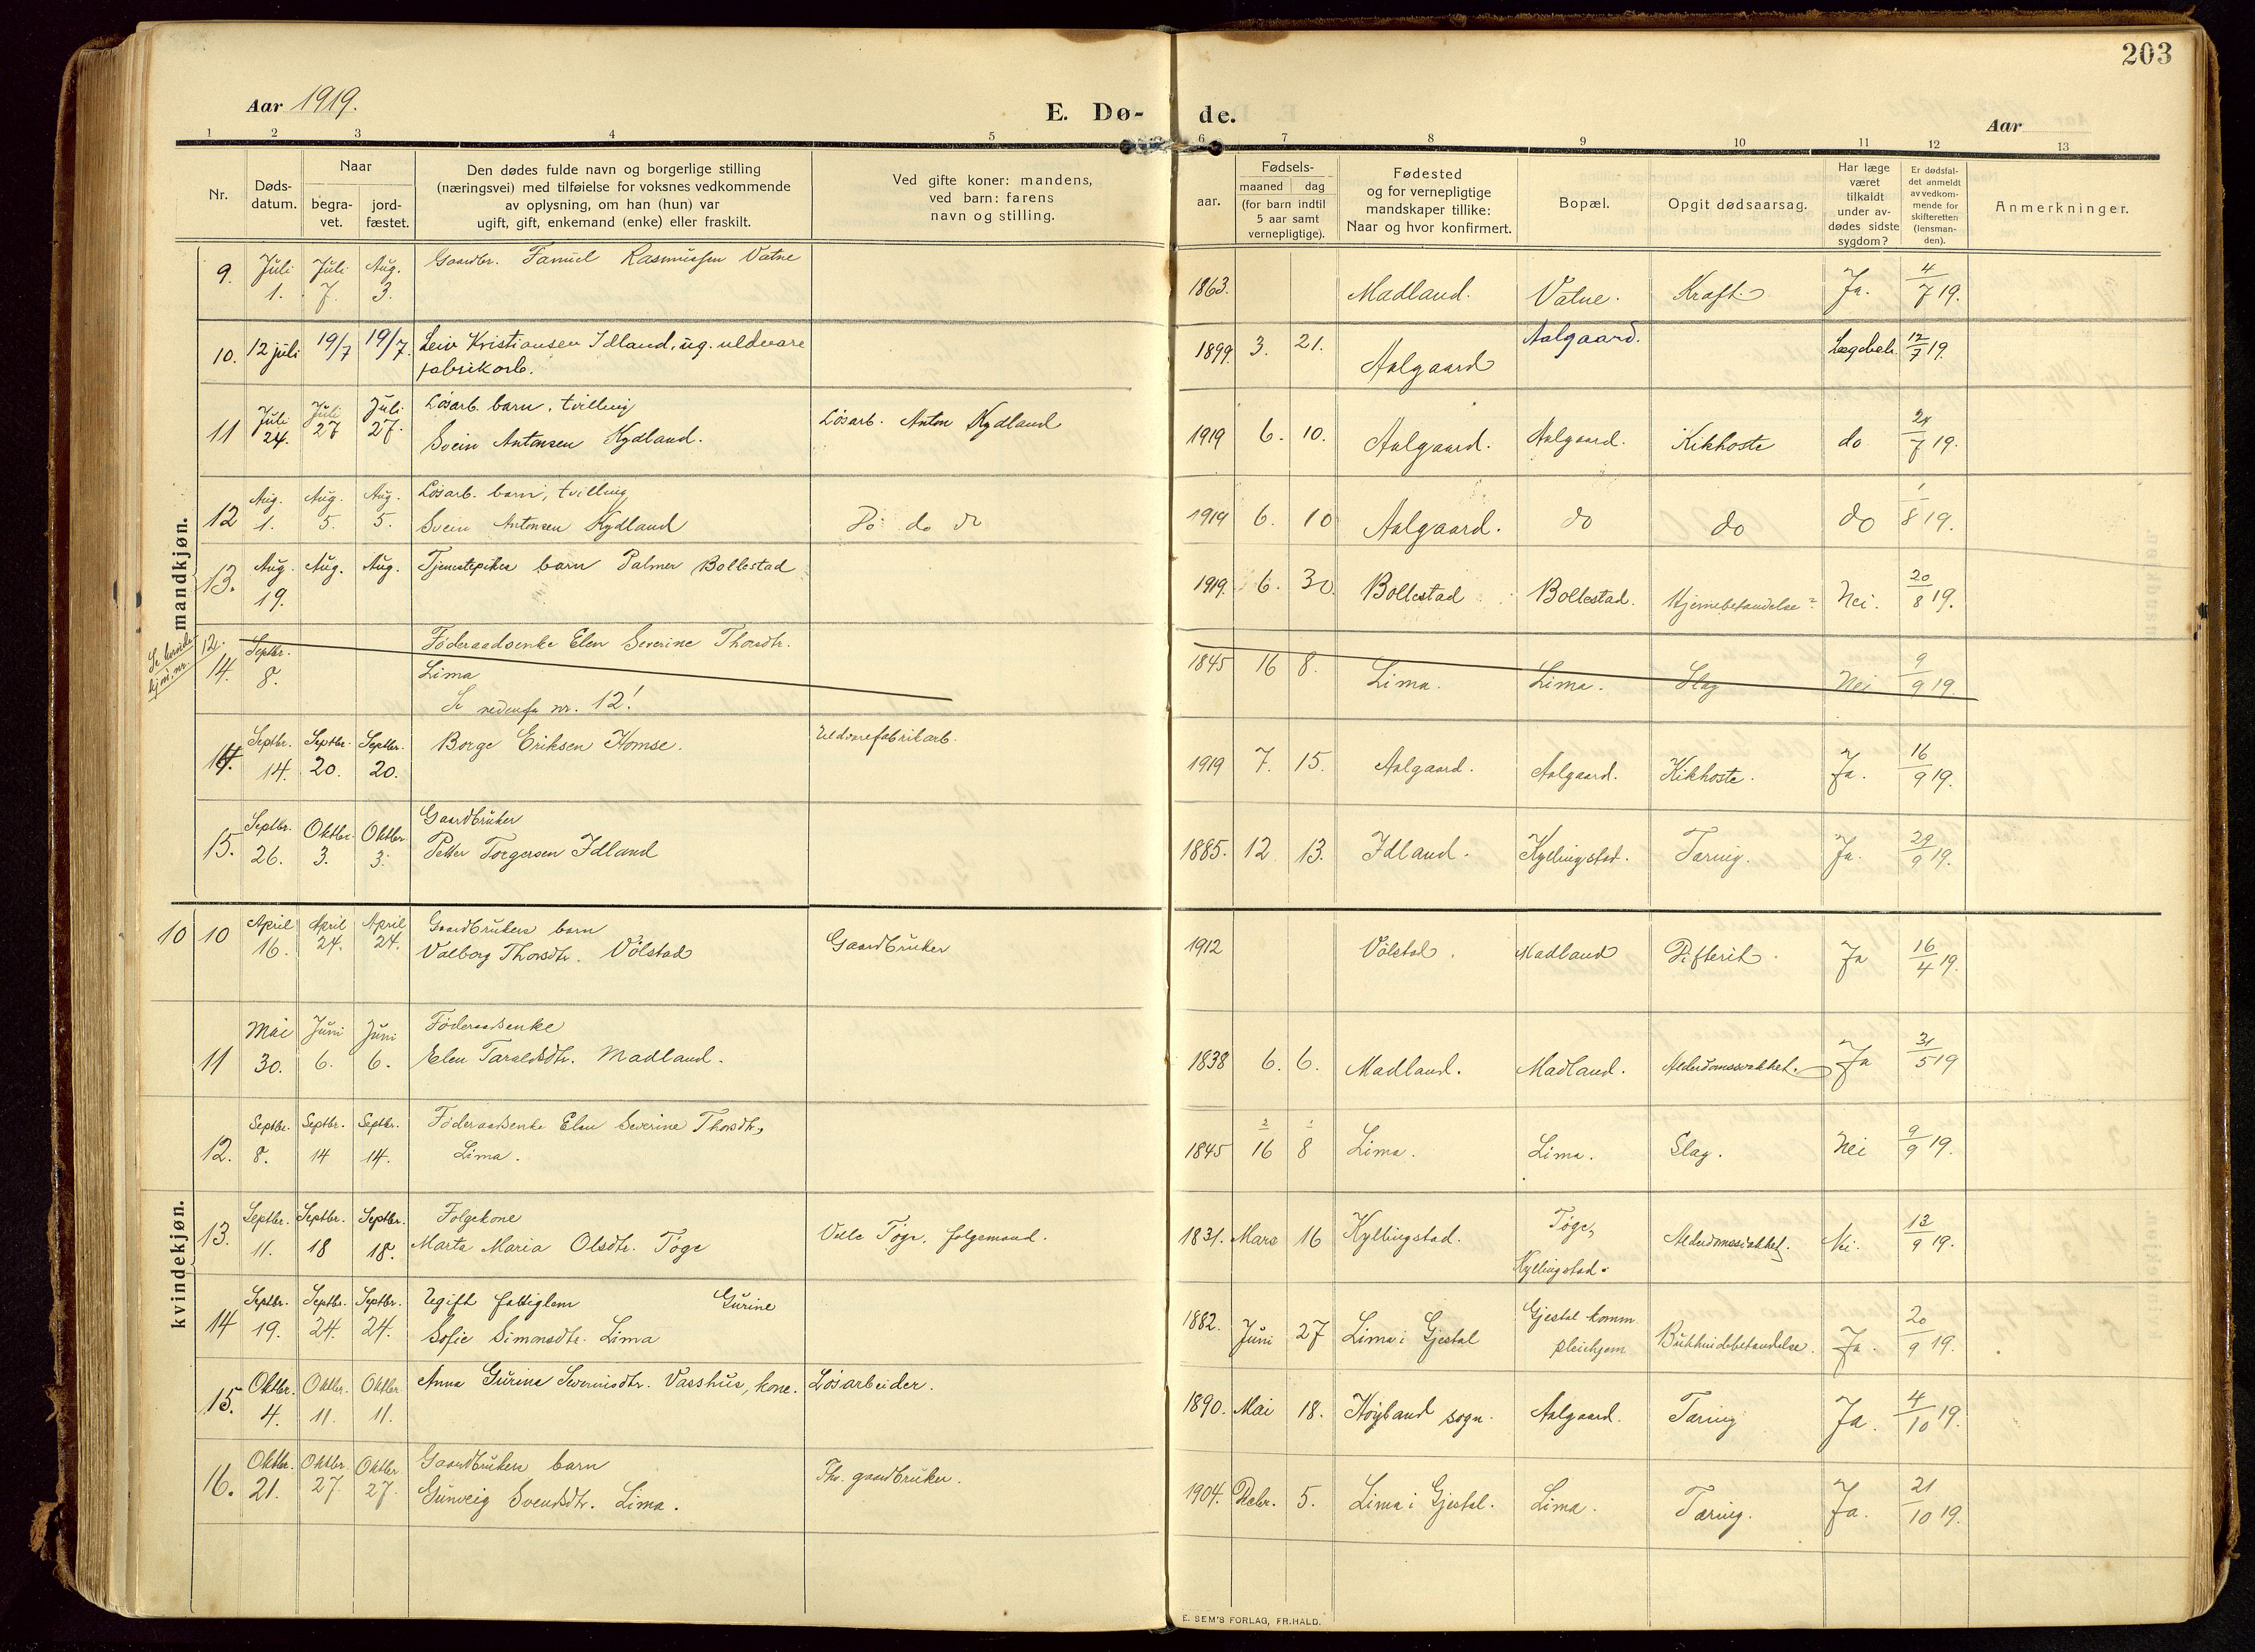 203
Aar 1919.
E. Dø- de.
Aar
1 2 3 4 5 6 7 8 9 10 11 12 13
Nr.
Døds-
datum.
Naar
begra-
vet.
jord-
fæstet.
Den dødes fulde navn og borgerlige stilling
(næringsvei) med tilføielse for voksnes vedkommende
av oplysning, om han (hun) var
ugift, gift, enkemand (enke) eller fraskilt.
Ved gifte koner: mandens,
ved barn: farens
navn og stilling.
aar.
Fødsels-
maaned dag
(for barn indtil
5 aar samt
vernepligtige).
Fødested
og for vernepligtige
mandskaper tillike:
Naar og hvor konfirmert.
Bopæl.
Opgit dødsaarsag.
Har læge
været
tilkaldt
under av-
dødes sidste
sygdom?
Er dødsfal-
det anmeldt
av vedkom-
mende for
skifteretten
(lensman-
den).
Anmerkninger.
mandkjøn.
9. Juli 1. Juli 7. Aug. 3. Gaardbr. Rasmussen Vatne 1863. Madland. Vatne. Kræft. Ja. 4/7 19.
10. 12 juli 19/7 19/7. Leiv Kristiansen Idland, ug. uldvare
fabrikarb. 1899 3. 21. Aalgaard Aalgaard. Lægebeh. 12/7 19.
11 Juli 24. Juli 27 Juli 27. Lösarb. barn, tvilling
Svein Antonsen Kydland. Lösarb. Anton Kydland 1919 6. 10. Aalgaard. Aalgaard. Kikhoste do 24/7 19.
12 Aug. 1. Aug. 5. Aug. 5. Lösarb. barn, tvilling
Svein Antonsen Kydland Do do do 1919 6. 10 Aalgaard. do do do 1/8 19.
13. Aug. 19. Aug. Aug. Tjenestepikes barn Palmer Bollestad 1919. 6. 30. Bollestad Bollestad. Hjernebetændelse Nei. 20/8 19.
Se
kjøn. nr. 12.
14. Septbr. 8. Föderaadsenke Elen Severine Thorsdtr.
Lima 1845 16 8. Lima. Lima. Slag Nei 9/9 19.
Se nedenfor nr. 12!
14. Septbr. 14. Septbr. 20. Septbr. 20. Borge Eriksen Homse. Uldvarefabrikarb. 1919 7. 15. Aalgaard. Aalgaard. Kikhoste. Ja. 16/9 19.
15. Septbr. 26. Oktbr. 3. Oktbr 3. Gaardbruker
Petter Torgersen Idland 1885. 12 13. Idland. Kyllingstad. Tæring. Ja. 29/9 19.
kvindekjøn.
10 10 April 16. April 24. April 24. Gaardbrukers barn
Valborg Thorsdtr. Völstad Gaardbruker 1912 Völstad. Madland Difterit. Ja 16/4 19.
11 Mai 30. Juni 6. Juni 6. Föderaadsenke
Elen Taraldsdtr. Madland. 1838 6. 6. Madland. Madland. Alderdomssvakhet. Ja 31/5 19
12. Septbr. 8. Septbr. 14 Septbr. 14. Föderaadsenke Elen Severine Thorsdtr.
Lima. 1845 2 16 1 8 Lima. Lima. Slag. Nei 9/9 19.
13. Septbr. 11. Septbr. 18 Septbr. 18. Folgekone
Marta Maria Olsdtr. Töge Töge, folgemand. 1831. Mars 16 Kyllingstad. Töge,
Kyllingstad. Alderdomssvakhet. Nei. 13/9 19.
14 Septbr. 19. Septbr. 24. Septbr. 24. Ugift fattiglem Gurine
Sofie Simonsdtr. Lima 1882. Juni 27 Lima i Gjestal Gjestal komm.
pleiehjem Bukhindebetændelse. Ja. 20/9 19.
15. Oktbr. 4. Oktbr. 11. Oktbr. 11. Anna Gurine Severinsdtr. Vasshus, kone. Lösarbeider. 1890. Mai 18. Höyland sogn. Aalgaard. Tæring Ja. 4/10 19.
16. Oktbr. 21. Oktbr. 27. Oktbr 27. Gaardbrukers barn
Gunveig Svendsdtr. Lima. gaardbruker. 1904. 5. Lima i Gjestal. Lima. Tæring. Ja. 21/10 19.
E. SEM'S FORLAG, FR.HALD.